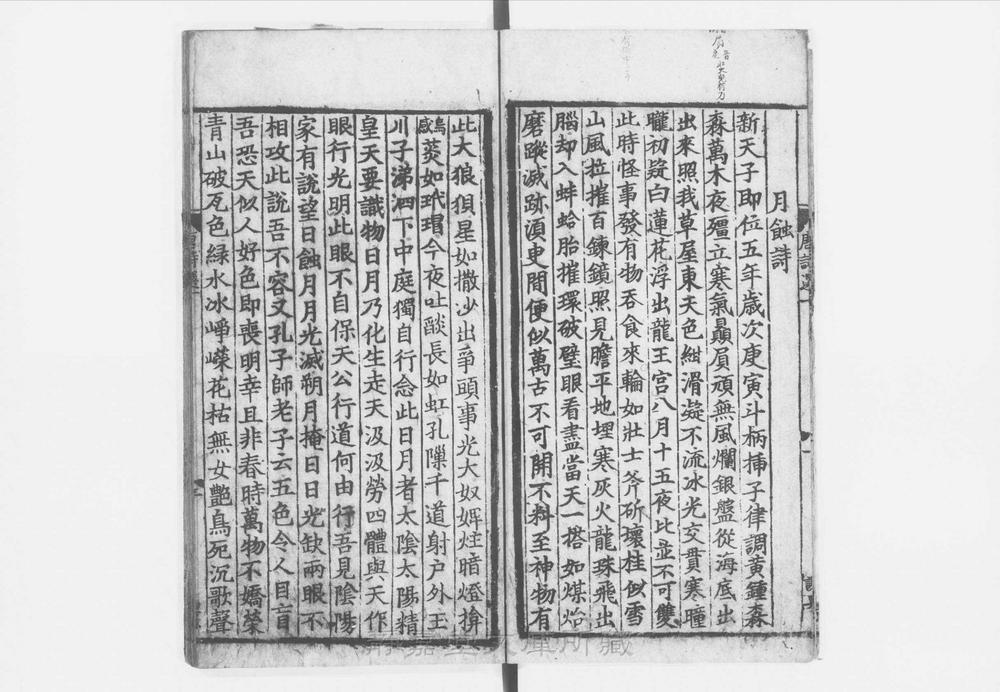 月蝕詩
新天子即位五年歳次庚寅斗柄揷子律調黃鍾森
森萬木夜殭立寒氣贔屓頑無風爛銀盤從海底出
出來照我草屋東天色紺滑凝不流冰光交貫寒曈
曨初疑白蓮花浮出龍王宮八月十五夜比並不可雙
此時怪事發有物吞食來輪如壯士斧斫壞桂似雪
山風拉摧百鍊鏡照見膽平地埋寒灰火龍珠飛出
腦却入蚌蛤胎摧環破璧眼看盡當天一搭如煤炲
磨蹤滅跡須臾間便似萬古不可開不料至神物有
此大狼狽星如撒沙出爭頭事光大奴婢炷暗燈揜
菼如玳瑁今夜吐燄長如虹孔隟千道射户外玉
川子涕泗下中庭獨自行念此日月者太陰太陽精
皇天要識物日月乃化生走天汲汲勞四體與天作
眼行光明此眼不自保天公行道何由行吾見陰陽
家有說望日蝕月月光滅朔月掩日日光缺兩眼不
相攻此說吾不容又孔子師老子云五色令人目盲
吾恐天似人好色即喪明幸且非春時萬物不嬌榮
青山破瓦色綠水冰崢嶸花枯無女艷鳥死沉歌聲